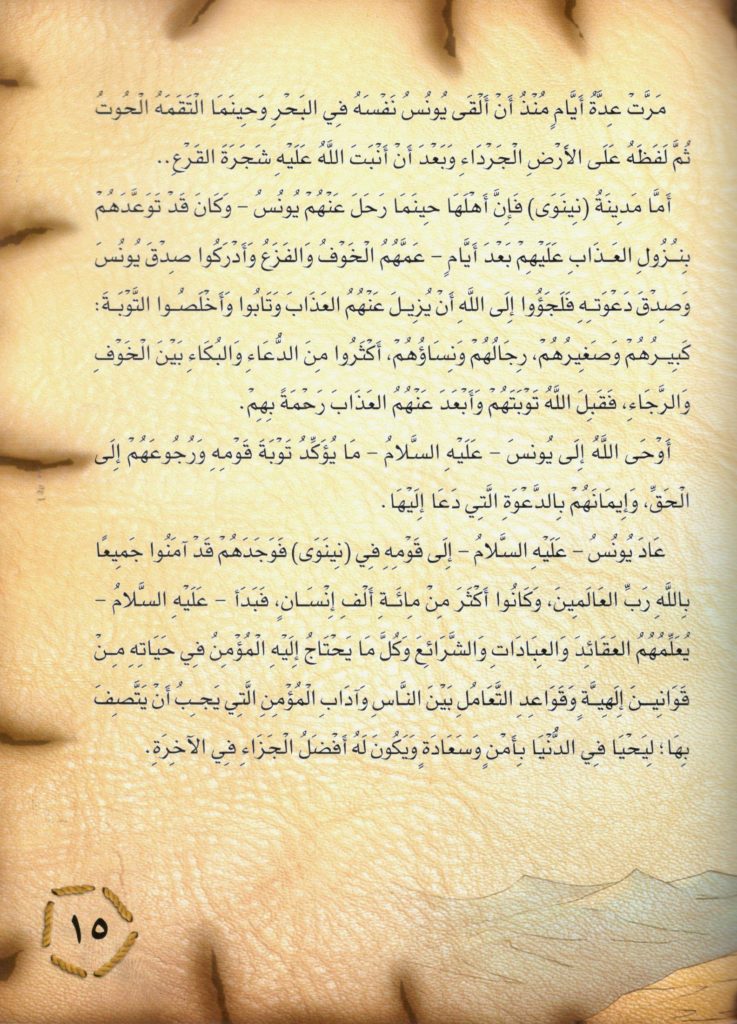 مَرَّتْ عِدَّةُ أَيَّامٍ مُنْذُ أَنْ أَلْقَى يُونُسُ نَفْسَهُ فِي البَحْرِ وَحِينَمَا الْتَقَمَهُ الْحُوتُ
ثُمَّ لَفَظَهُ عَلَى الأَرْضِ الْجَرْدَاءِ وَبَعْدَ أَنْ أَنْبَتَ اللَّهُ عَلَيْهِ شَجَرَةَ القَرْعِ..
أَمَّا مَدِينَةُ (نِينَوَى) فَإِنَّ أَهْلَهَا حِينَمَا رَحَلَ عَنْهُمْ يُونُسُ – وَكَانَ قَدْ تَوَعَّدَهُمْ
بِنُزُولِ العَذَابِ عَلَيْهِمْ بَعْدَ أَيَّامٍ – عَمَّهُمُ الْخَوْفُ وَالفَزَعُ وَأَدْرَكُوا صِدْقَ يُونُسَ
وَصِدْقَ دَعْوَتِهِ فَلَجَؤُوا إِلَى اللَّهِ أَنْ يُزِيلَ عَنْهُمُ العَذَابَ وَتَابُوا وَأَخْلَصُوا التَّوْبَةَ:
كَبِيرُهُمْ وَصَغِيرُهُمْ، رِجَالُهُمْ وَنِسَاؤُهُمْ، أَكْثَرُوا مِنَ الدُّعَاءِ وَالْبُكَاءِ بَيْنَ الْخَوْفِ
وَالرَّجَاءِ، فَقَبِلَ اللَّهُ تَوْبَتَهُمْ وَأَبْعَدَ عَنْهُمُ العَذَابَ رَحْمَةً بِهِمْ.
أَوْحَى اللَّهُ إِلَى يُونُسَ – عَلَيْهِ السَّلَامُ – مَا يُؤَكِّدُ تَوْبَةَ قَوْمِهِ وَرُجُوعَهُمْ إِلَى
الْحَقِّ، وَإِيمَانَهُمْ بِالدَّعْوَةِ الَّتِي دَعَا إِلَيْهَا.
عَادَ يُونُسُ – عَلَيْهِ السَّلَامُ – إِلَى قَوْمِهِ فِي (نِينَوَى) فَوَجَدَهُمْ قَدْ آمَنُوا جَمِيعًا
بِاللَّهِ رَبِّ العَالَمِينَ، وَكَانُوا أَكْثَرَ مِنْ مِائَةِ أَلْفِ إِنْسَانٍ، فَبَدَأَ – عَلَيْهِ السَّلَامُ –
يُعَلِّمُهُمُ العَقَائِدَ وَالعِبَادَاتِ وَالشَّرَائِعَ وَكُلَّ مَا يَحْتَاجُ إِلَيْهِ الْمُؤْمِنُ فِي حَيَاتِهِ مِنْ
قَوَانِينَ إِلَهِيَّةٍ وَقَوَاعِدِ التَّعَامُلِ بَيْنَ النَّاسِ وَآدَابِ الْمُؤْمِنِ الَّتِي يَجِبُ أَنْ يَتَّصِفَ
بِهَا؛ لِيَحْيَا فِي الدُّنْيَا بِأَمْنٍ وَسَعَادَةٍ وَيَكُونَ لَهُ أَفْضَلُ الْجَزَاءِ فِي الآخِرَةِ.
١٥